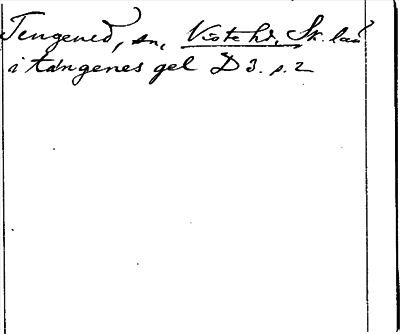 Tengened, sn, Viste hd, Sk. län
i tængenes gel D 3. p. 2